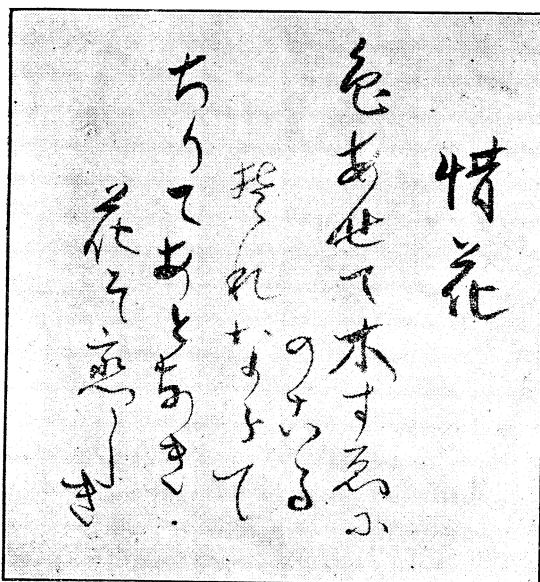 惜花
色あせて木すゑに
のこる
それならて
ちりてあとなき
花そ戀しき